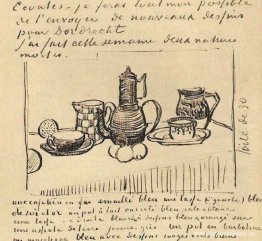 Ecoutes - je ferai tout mon possible
de l'envoyer de nouveaux dessins
pour Dordrecht
J'ai fait cette semaine deux natures
mortes.
toile de 30
une cafetière en fer émaillé bleu une tasse (à gauche) bleu
de roi et or un pot à lait carrelé bleu
une tasse à droite blanche dessins bleu orangé sur
une assiette de terre jaune gris un pot en barbotine
bleu avec dessins rouges verts bruns